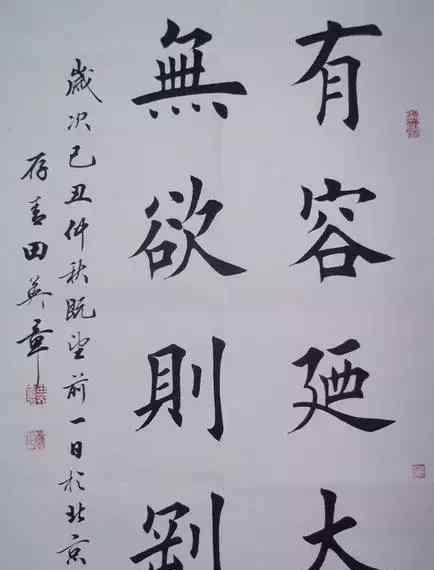 有容廼大
無欲則剛
歲次己丑仲秋既望前一日於北京
存青田英章